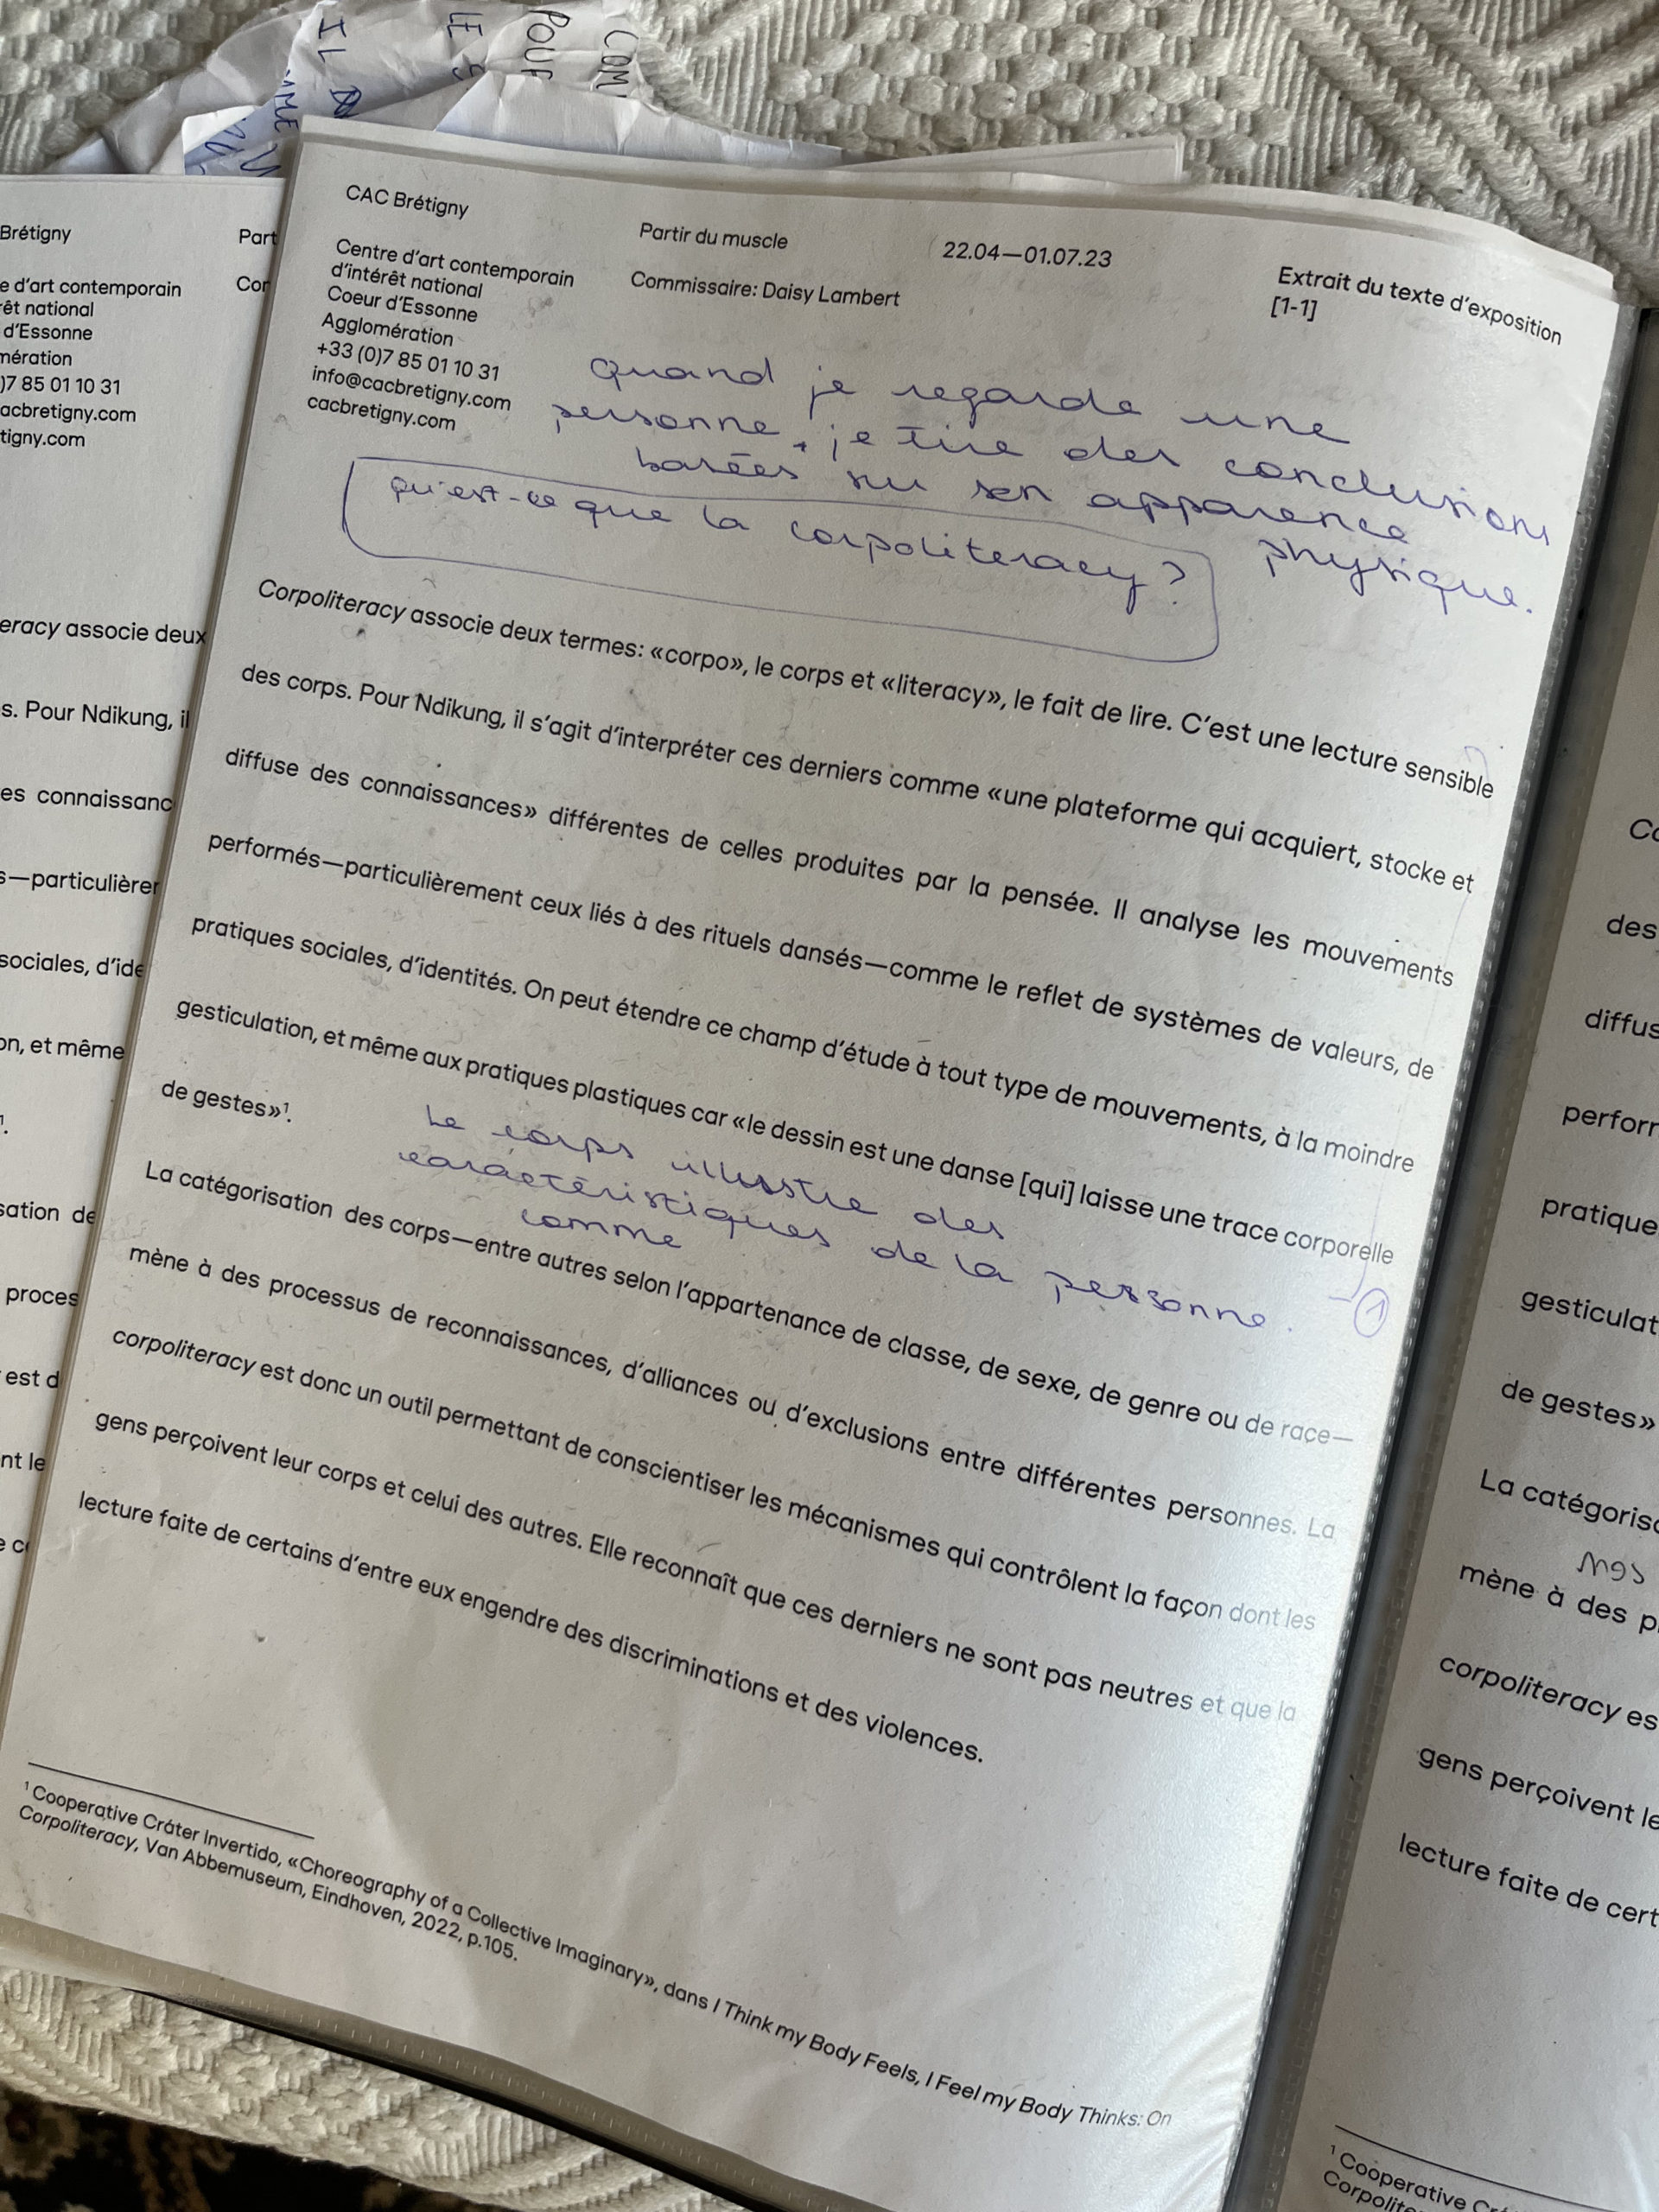 COM
POUR
LES
IL
CAC Brétigny
Centre d'art contemporain
d'intérêt national
Coeur d'Essonne
Agglomération
+33 (0)7 85 01 10 31
info@cacbretigny.com
cacbretigny.com
Partir du muscle
Commissaire: Daisy Lambert
22.04—01.07.23
Extrait du texte d'exposition
[1-1]
quand je regarde une
personne, je tire des conclusions
basées sur son apparence
physique.
qu'est-ce que la corpoliteracy?
Corpoliteracy associe deux termes: «corpo», le corps et «literacy», le fait de lire. C'est une lecture sensible
des corps. Pour Ndikung, il s'agit d'interpréter ces derniers comme «une plateforme qui acquiert, stocke et
diffuse des connaissances» différentes de celles produites par la pensée. Il analyse les mouvements
performés—particulièrement ceux liés à des rituels dansés—comme le reflet de systèmes de valeurs, de
pratiques sociales, d'identités. On peut étendre ce champ d'étude à tout type de mouvements, à la moindre
gesticulation, et même aux pratiques plastiques car «le dessin est une danse [qui] laisse une trace corporelle
de gestes»¹.
Le corps illustre des
caractéristiques de la personne.
comme
1
La catégorisation des corps—entre autres selon l'appartenance de classe, de sexe, de genre ou de race—
mène à des processus de reconnaissances, d'alliances ou d'exclusions entre différentes personnes. La
corpoliteracy est donc un outil permettant de conscientiser les mécanismes qui contrôlent la façon dont les
gens perçoivent leur corps et celui des autres. Elle reconnaît que ces derniers ne sont pas neutres et que la
lecture faite de certains d'entre eux engendre des discriminations et des violences.
¹ Cooperative Cráter Invertido, «Choreography of a Collective Imaginary», dans I Think my Body Feels, I Feel my Body Thinks: On
Corpoliteracy, Van Abbemuseum, Eindhoven, 2022, p.105.
Brétigny
e d'art contemporain
rêt national
d'Essonne
mération
)7 85 01 10 31
acbretigny.com
tigny.com
Part
Cor
eracy associe deux
s. Pour Ndikung, il
es connaissanc
s—particulièrer
sociales, d'ide
on, et même
¹.
sation de
proces
est d
nt le
e c
Co
des
diffus
perforr
pratique
gesticulat
de gestes»
La catégoriso
mène à des p
corpoliteracy es
gens perçoivent le
lecture faite de cert
¹ Cooperative Cr
Corpolite